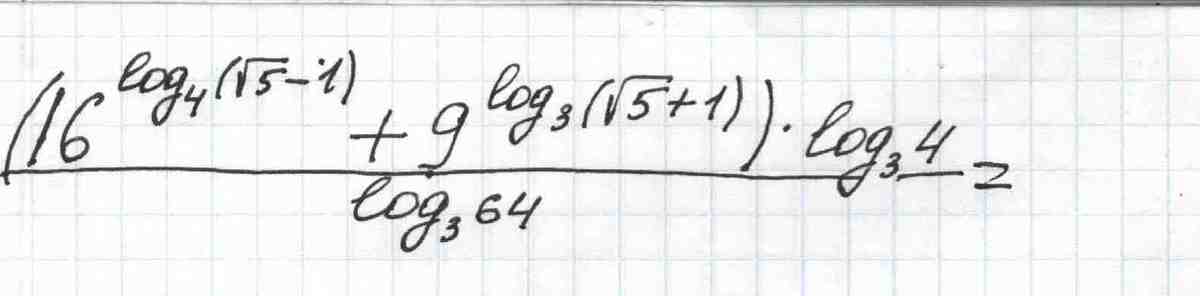 (16^{log_4(√5-1)} + 9^{log_3(√5+1)}) · log_3 4 =
log_3 64